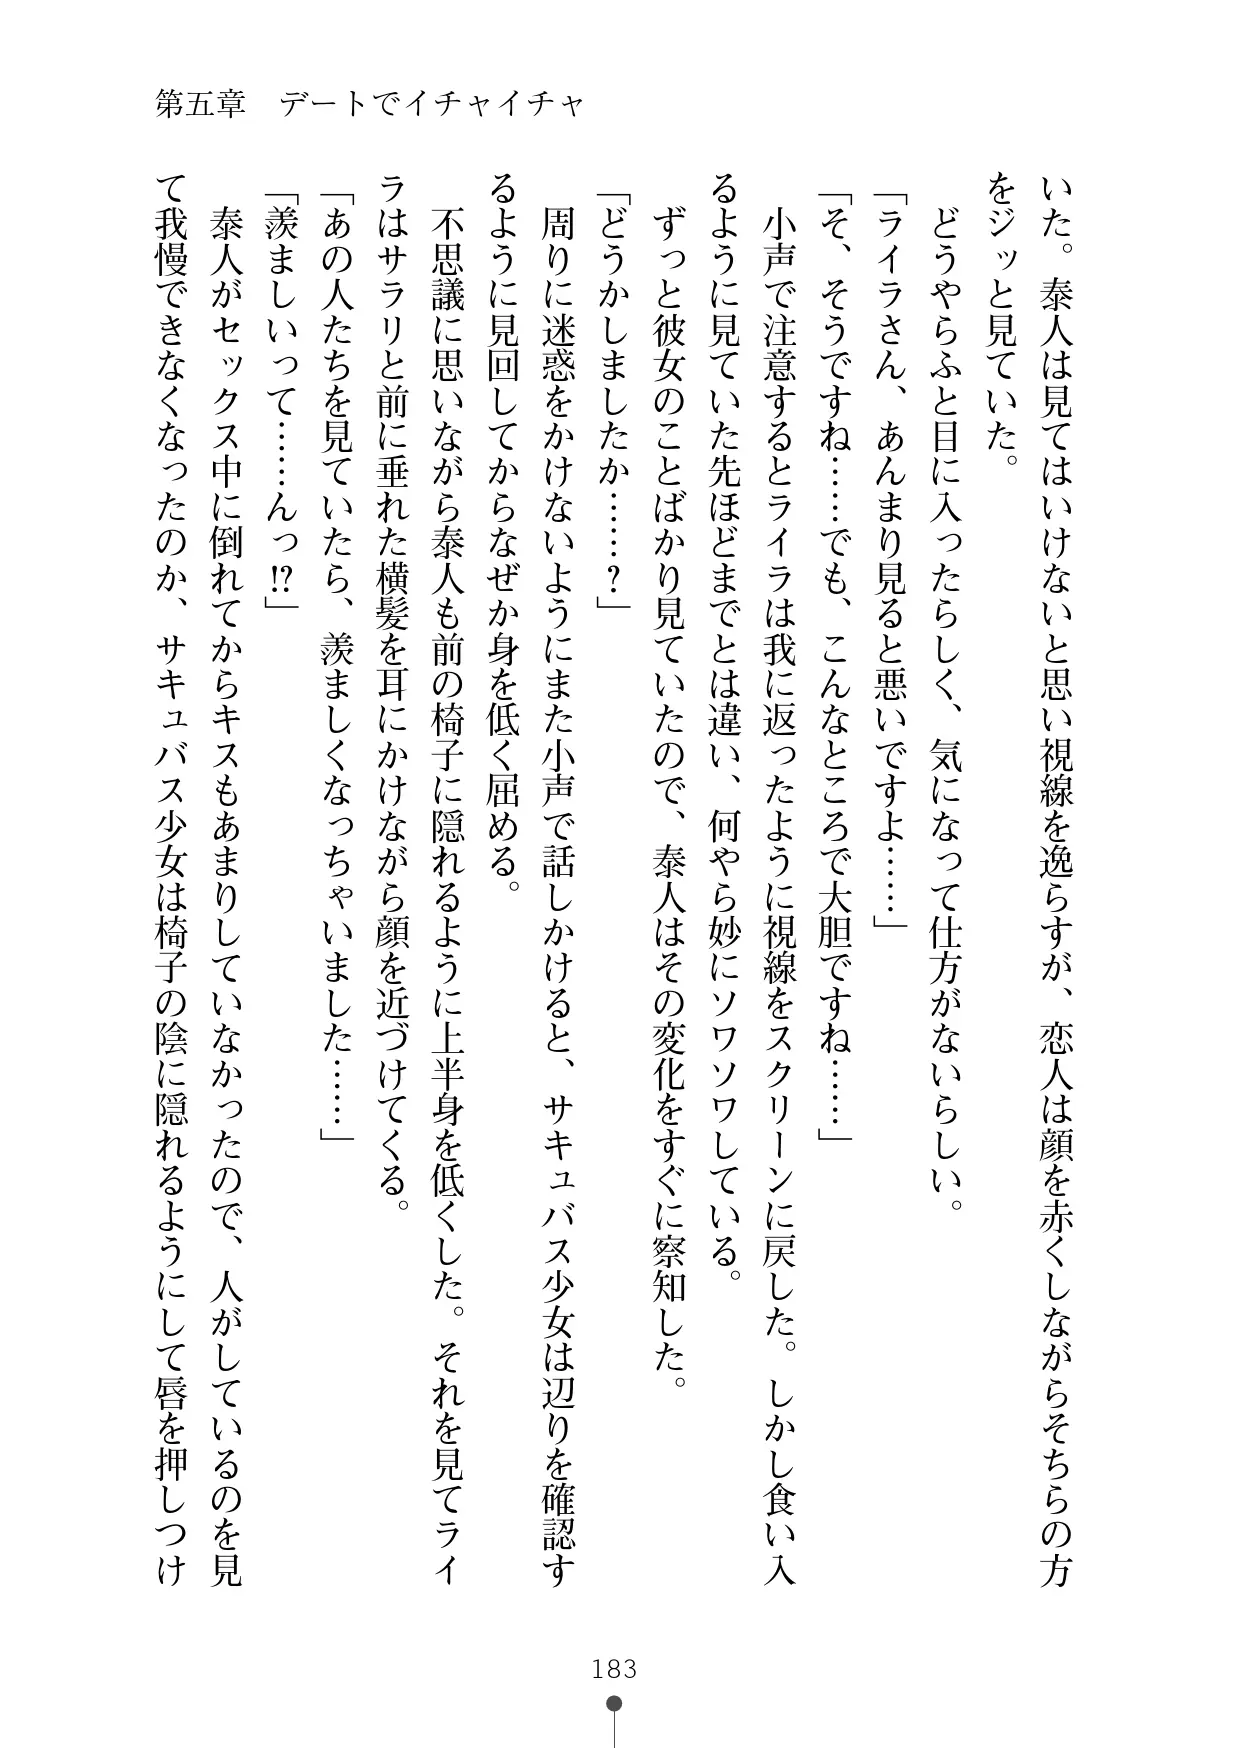 第五章　デートでイチャイチャ
いた。泰人は見てはいけないと思い視線を逸らすが、恋人は顔を赤くしながらそちらの方
をジッと見ていた。
　どうやらふと目に入ったらしく、気になって仕方がないらしい。
「ライラさん、あんまり見ると悪いですよ……」
「そ、そうですね……でも、こんなところで大胆ですね……」
　小声で注意するとライラは我に返ったように視線をスクリーンに戻した。しかし食い入
るように見ていた先ほどまでとは違い、何やら妙にソワソワしている。
　ずっと彼女のことばかり見ていたので、泰人はその変化をすぐに察知した。
「どうかしましたか……？」
　周りに迷惑をかけないようにまた小声で話しかけると、サキュバス少女は辺りを確認す
るように見回してからなぜか身を低く屈める。
　不思議に思いながら泰人も前の椅子に隠れるように上半身を低くした。それを見てライ
ラはサラリと前に垂れた横髪を耳にかけながら顔を近づけてくる。
「あの人たちを見ていたら、羨ましくなっちゃいました……」
「羨ましいって……んっ!?」
　泰人がセックス中に倒れてからキスもあまりしていなかったので、人がしているのを見
て我慢できなくなったのか、サキュバス少女は椅子の陰に隠れるようにして唇を押しつけ
183